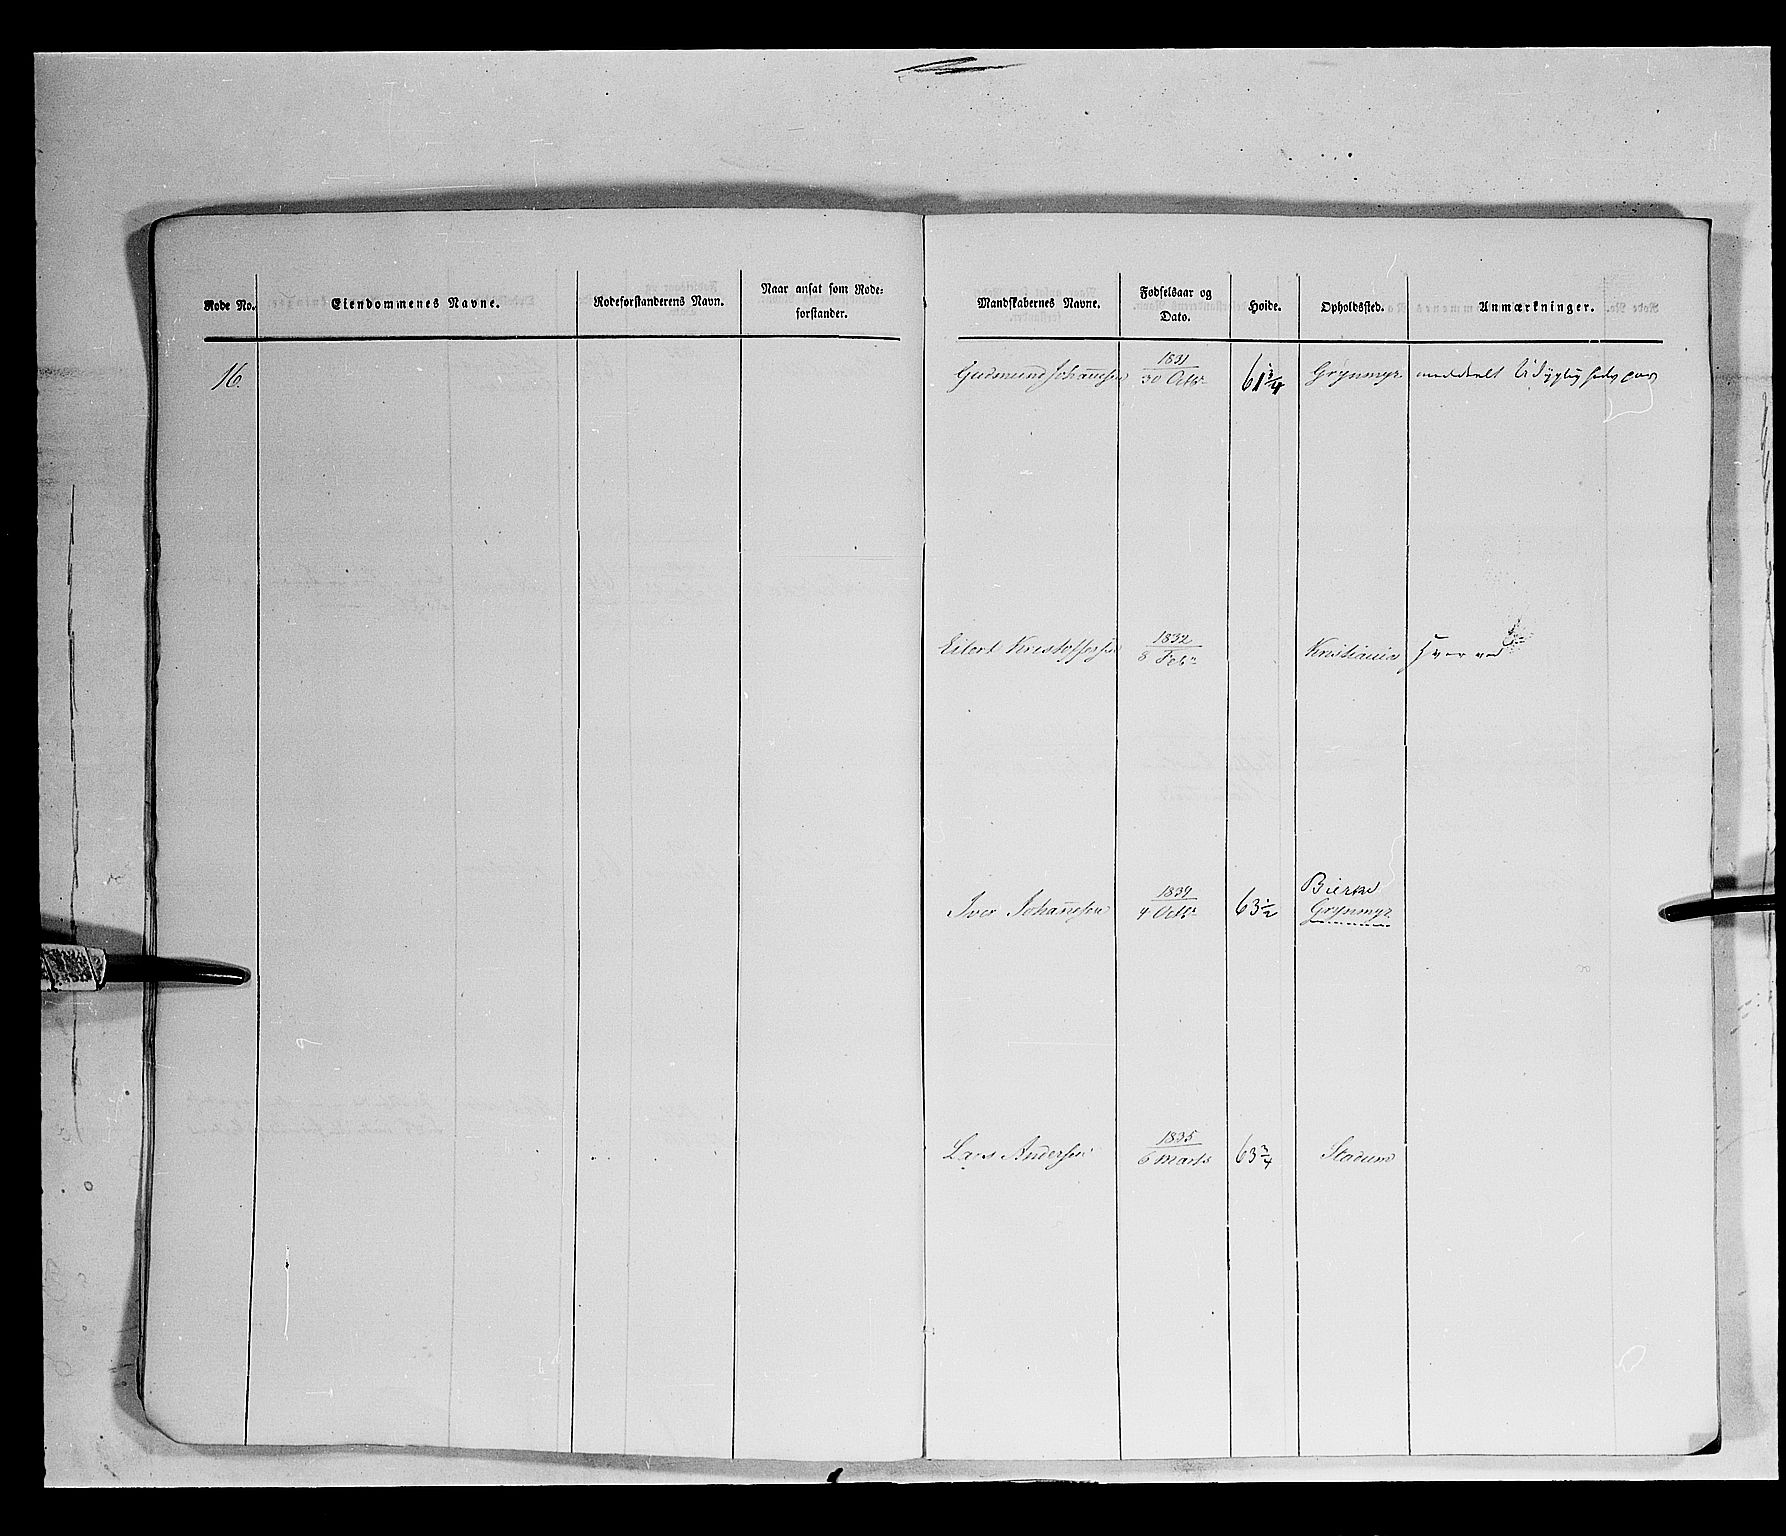 Rode No.
Eiendommenes Navne.
Rodeforstanderens Navn.
Naar ansat som Rode=
forstander.
Mandskabernes Navne.
Fødselsaar og
Dato.
Høide.
Opholdssted.
Anmærkninger.
16
Gudmund Johannesen
1831
30 Octbr
61 3/4
Grynmyr
meddeelt Udygtighedspas
Eilert Kristoffersen
1832
8 Febr
Kristiania
Iver Johannesen
1834
4 Octbr
63 1/2
Bierke
Grynmyr
Lars Andersen
1835
6 Marts
63 3/4
Stadum